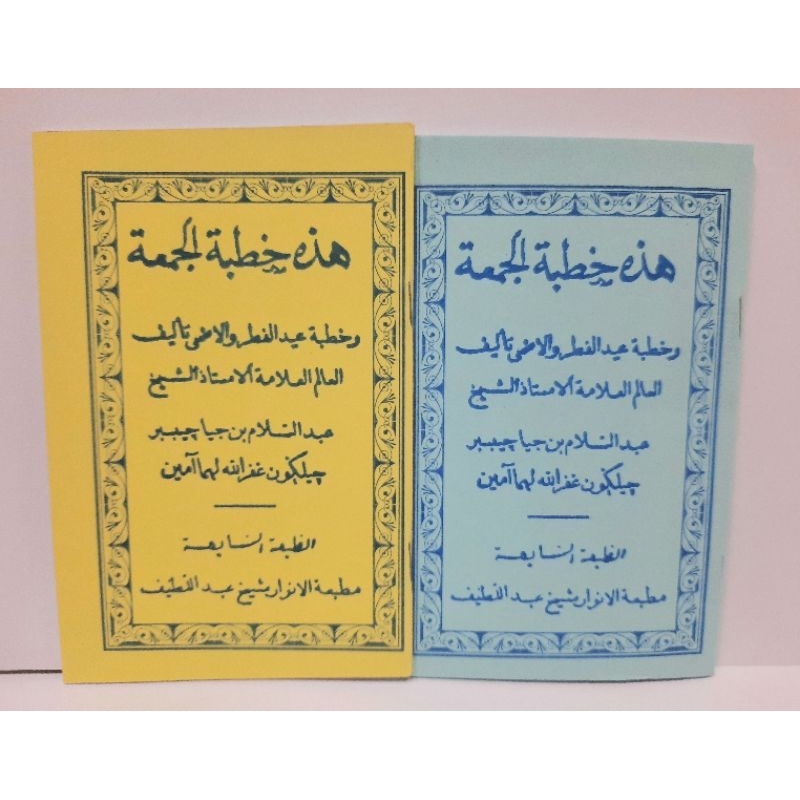 هذه خطبة الجمعة
وخطبة عيد الفطر والاضحى تأليف
العالم العلامة الاستاذ الشيخ
عبد السلام بن جيا چيبير
چيلكون غفر الله لهما آمين
الطبعة السابعة
مطبعة الانوار شيخ عبد اللطيف
هذه خطبة الجمعة
وخطبة عيد الفطر والاضحى تأليف
العالم العلامة الاستاذ الشيخ
عبد السلام بن جيا چيبير
چيلكون غفر الله لهما آمين
الطبعة السابعة
مطبعة الانوار شيخ عبد اللطيف